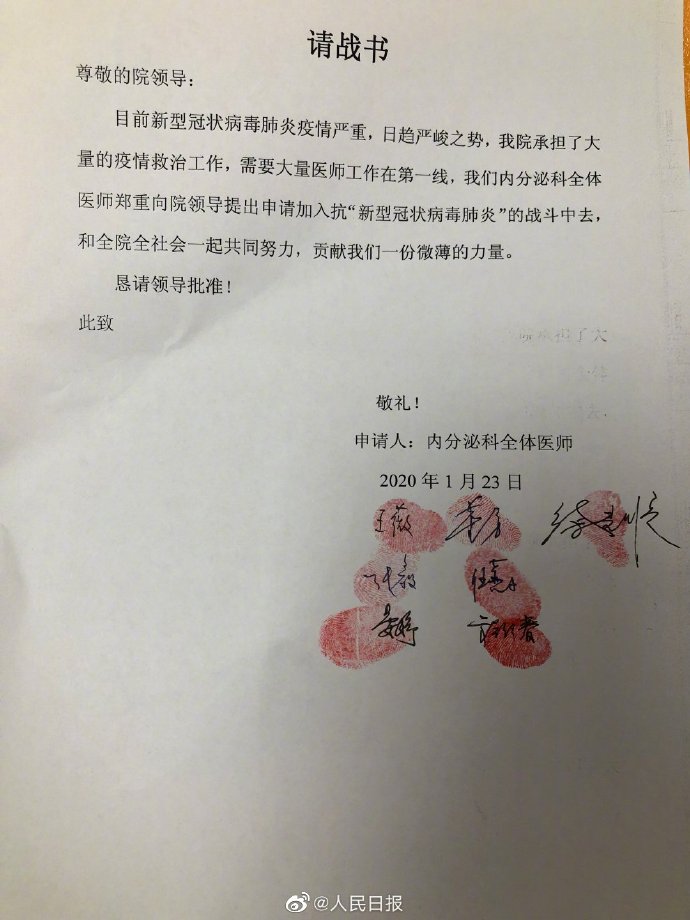 请战书
尊敬的院领导：
目前新型冠状病毒肺炎疫情严重，日趋严峻之势，我院承担了大
量的疫情救治工作，需要大量医师工作在第一线，我们内分泌科全体
医师郑重向院领导提出申请加入抗“新型冠状病毒肺炎”的战斗中去，
和全院全社会一起共同努力，贡献我们一份微薄的力量。
恳请领导批准！
此致
敬礼！
申请人：内分泌科全体医师
2020 年 1 月 23 日
王薇
@人民日报